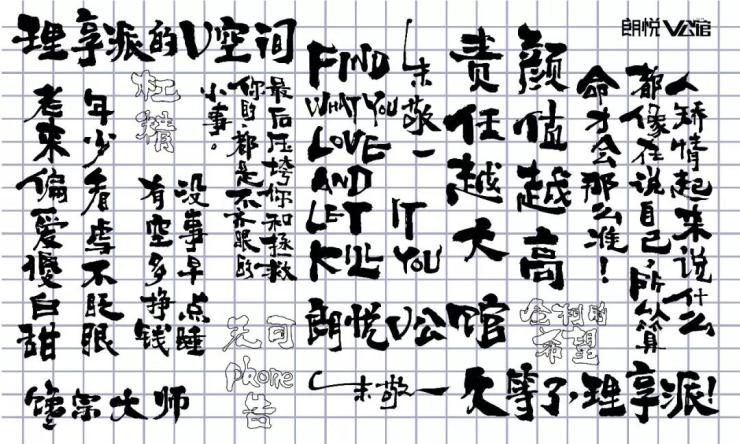 理享派的V空间
朗悦V公馆
杠精
年少看虐不眨眼
老来偏爱傻白甜
没事早点睡
有空多挣钱
最后压垮你和拯救
你的都是不起眼的
小事。
FIND
WHAT YOU
LOVE
AND
LET IT
KILL YOU
朱敬一
颜值越高
责任越大
人矫情起来说什么
都像在说自己,所以算
命才会那么准!
无可
phone
告
全村的
希望
朗悦V公馆
馋宗大师
朱敬一
久等了,理享派!